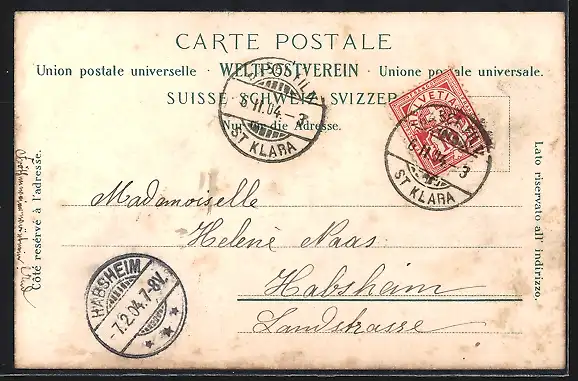 CARTE POSTALE
Union postale universelle · WELTPOSTVEREIN · Unione postale universale.
SUISSE SCHWEIZ SVIZZERA
Nur für die Adresse.
6.II.04.-3
ST KLARA
HELVETIA
6.II.04.-3
ST KLARA
Côté réservé à l'adresse.
Lato riservato all' indirizzo.
Mademoiselle
Helenè Naas
Habsheim
Landstrasse
HABSHEIM
-7.2.04.7-8V.